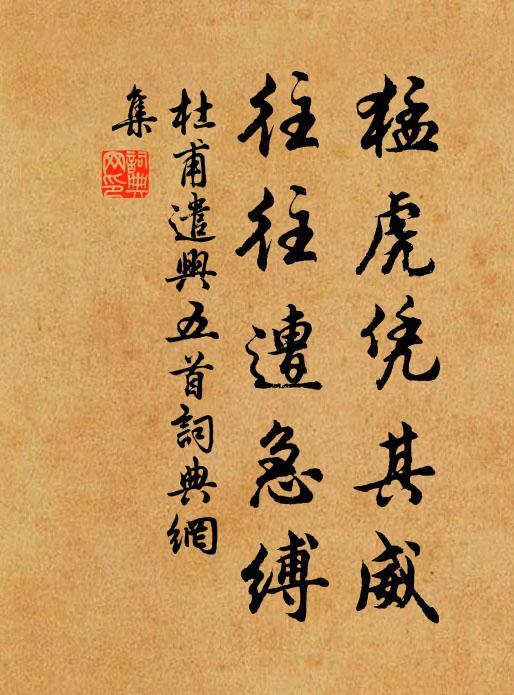 猛虎凭其威
往往遭急缚
杜甫遣興五首詞典網
集
詞典網印